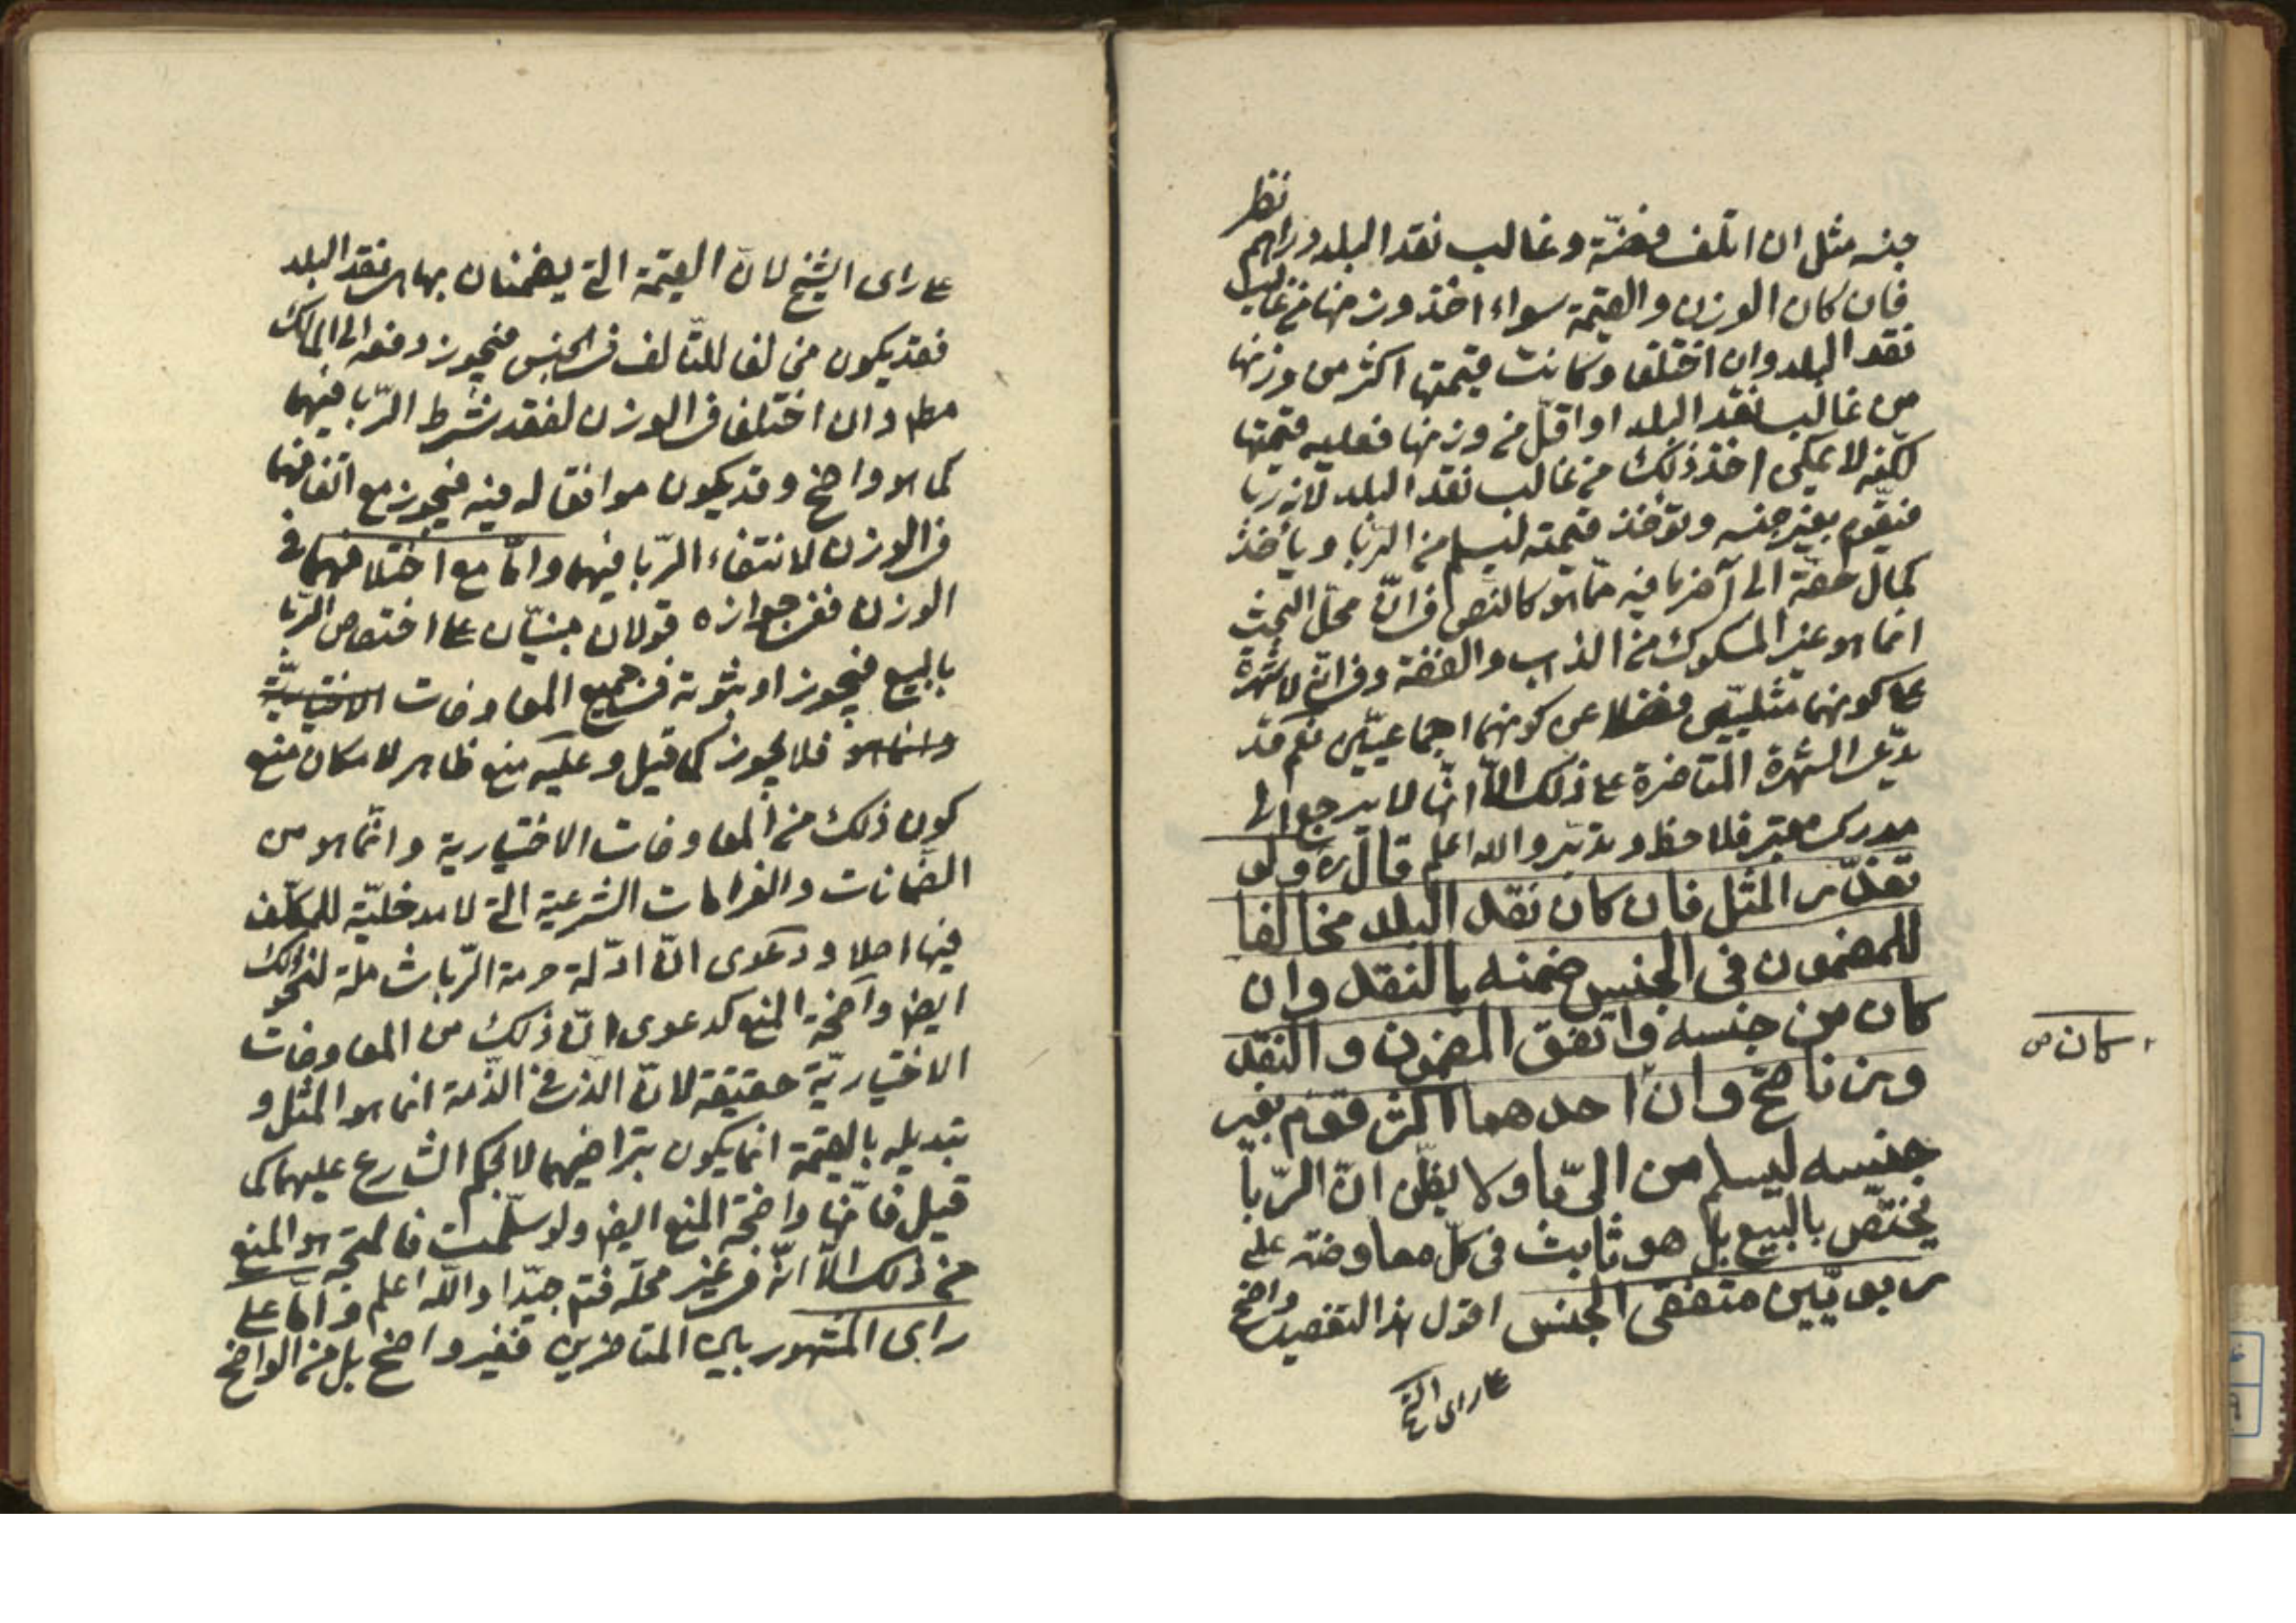 جنسه مثل ان اتلف فضّة و غالب نقد البلد دراهم نظر
فان كان الوزن و القيمة سواء اخذ وزنها من غالب
نقد البلد وان اختلفا وكانت قيمتها اكثر من وزنها
من غالب نقد البلد او اقلّ من وزنها فعليه قيمتها
لكنّه لا يمكن اخذ ذلك من غالب نقد البلد لانه ربا
فيقوّم بغير جنسه و تؤخذ قيمته ليسلم من الربا و يأخذ
كمال حقّه الى آخر ما فيه ممّا هو كالنص فى انّ محلّ البحث
انما هو غير المسكوك من الذهب و الفضة و فى انّه لا شهرة
على كونهما مثليّين فضلا عن كونهما اجماعيّين نعم قد
يدّعى الشهرة المتاخرة على ذلك الّا انّها لا يرجع الى
مدرك معتبر فلاحظ و تدبّر و الله اعلم قال ره ولو
تعذّر المثل فان كان نقد البلد مخالفا
للمضمون فى الجنس ضمنه بالنقد وان
كان من جنسه واتفق المضمون و النقد
وزنا صحّ وان احدهما اكثر قوّم بغير
جنسه ليسلم من الرّبا ولا يظّن انّ الرّبا
يختصّ بالبيع بل هو ثابت فى كلّ معاوضة على
ربويّين متفقى الجنس اقول هذا التفصيل واضح
على راى الشيخ
كان ص
على راى الشيخ لانّ القيمة التى يضمنان بها هى نقد البلد
فقد يكون مخالفا للتّالف فى الجنس فيجوز دفعه الى المالك
مطم وان اختلفا فى الوزن لفقد شرط الرّبا فيهما
كما هو واضح و قد يكون موافقا له فيه فيجوز مع اتفاقهما
فى الوزن لانتفاء الرّبا فيهما وامّا مع اختلافهما فى
الوزن ففى جوازه قولان مبنيّان على اختصاص الرّبا
بالبيع فيجوز او ثبوته فى جميع المعاوضات الاختياريّة
وانما هو فلا يجوز كما قيل و عليه منع ظاهر لامكان منع
كون ذلك من المعاوضات الاختيارية و انّما هو من
الضمانات و الغرامات الشرعيّة التى لا مدخليّة للمكلّف
فيها اصلا و دعوى انّ ادّلة حرمة الرّبا شاملة لنحو ذلك
ايضا واضحة المنع كدعوى انّ ذلك من المعاوضات
الاختياريّة حقيقة لانّ الذى فى الذّمة انما هو المثل و
تبديله بالقيمة انما يكون بتراضيهما لا لحكم الشارع عليهما كما
قيل فانّها واضحة المنع ايضا ولو سلّمت فالمتجه هو المنع
من ذلك الّا انّه فى غير محلّه فتم جيّدا و اللّه اعلم و امّا على
راى المشهور بين المتاخرين فغير واضح بل من الواضح